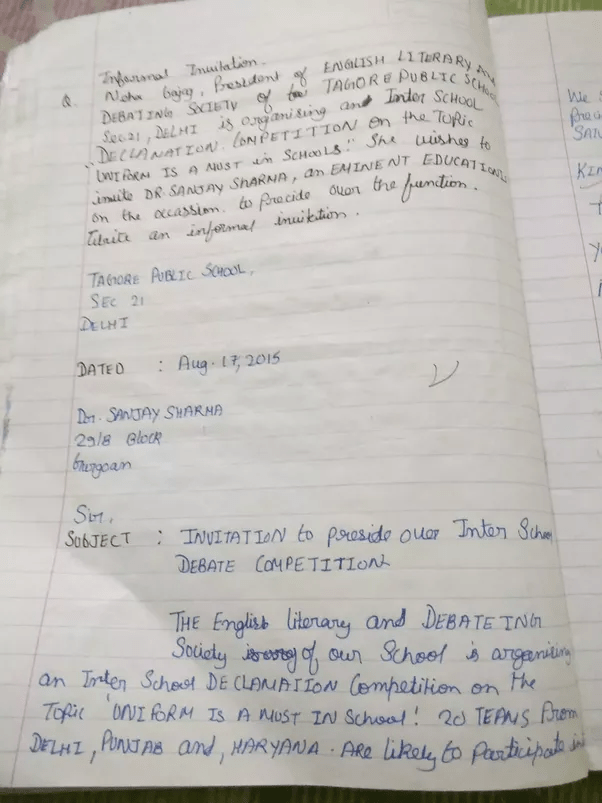 Informal Invitation.
Q. Neha Bajaj, President of ENGLISH LITERARY AND
DEBATING SOCIETY of TAGORE PUBLIC SCHOOL
Sec 21, DELHI is organising and Inter SCHOOL
DECLANATION COMPETITION on the Topic
"UNIFORM IS A MUST in SCHOOLS". She wishes to
invite DR. SANJAY SHARMA, an EMINENT EDUCATION
on the occassion. to precide over the function.
Write an informal invitation.
TAGORE PUBLIC SCHOOL,
SEC 21
DELHI
DATED : Aug. 17, 2015
Dr. SANJAY SHARMA
29/8 Block
Gurgoan
Sir.
SUBJECT : INVITATION to preside over Inter School
DEBATE COMPETITION
THE English literary and DEBATEING
Society of our School is organising
an Inter School DECLAMATION Competition on the
Topic 'UNIFORM IS A MUST IN School! 20 TEAMS from
DELHI, PUNJAB and, HARYANA. ARE likely to participate in
We
Prec
SAN
KIN